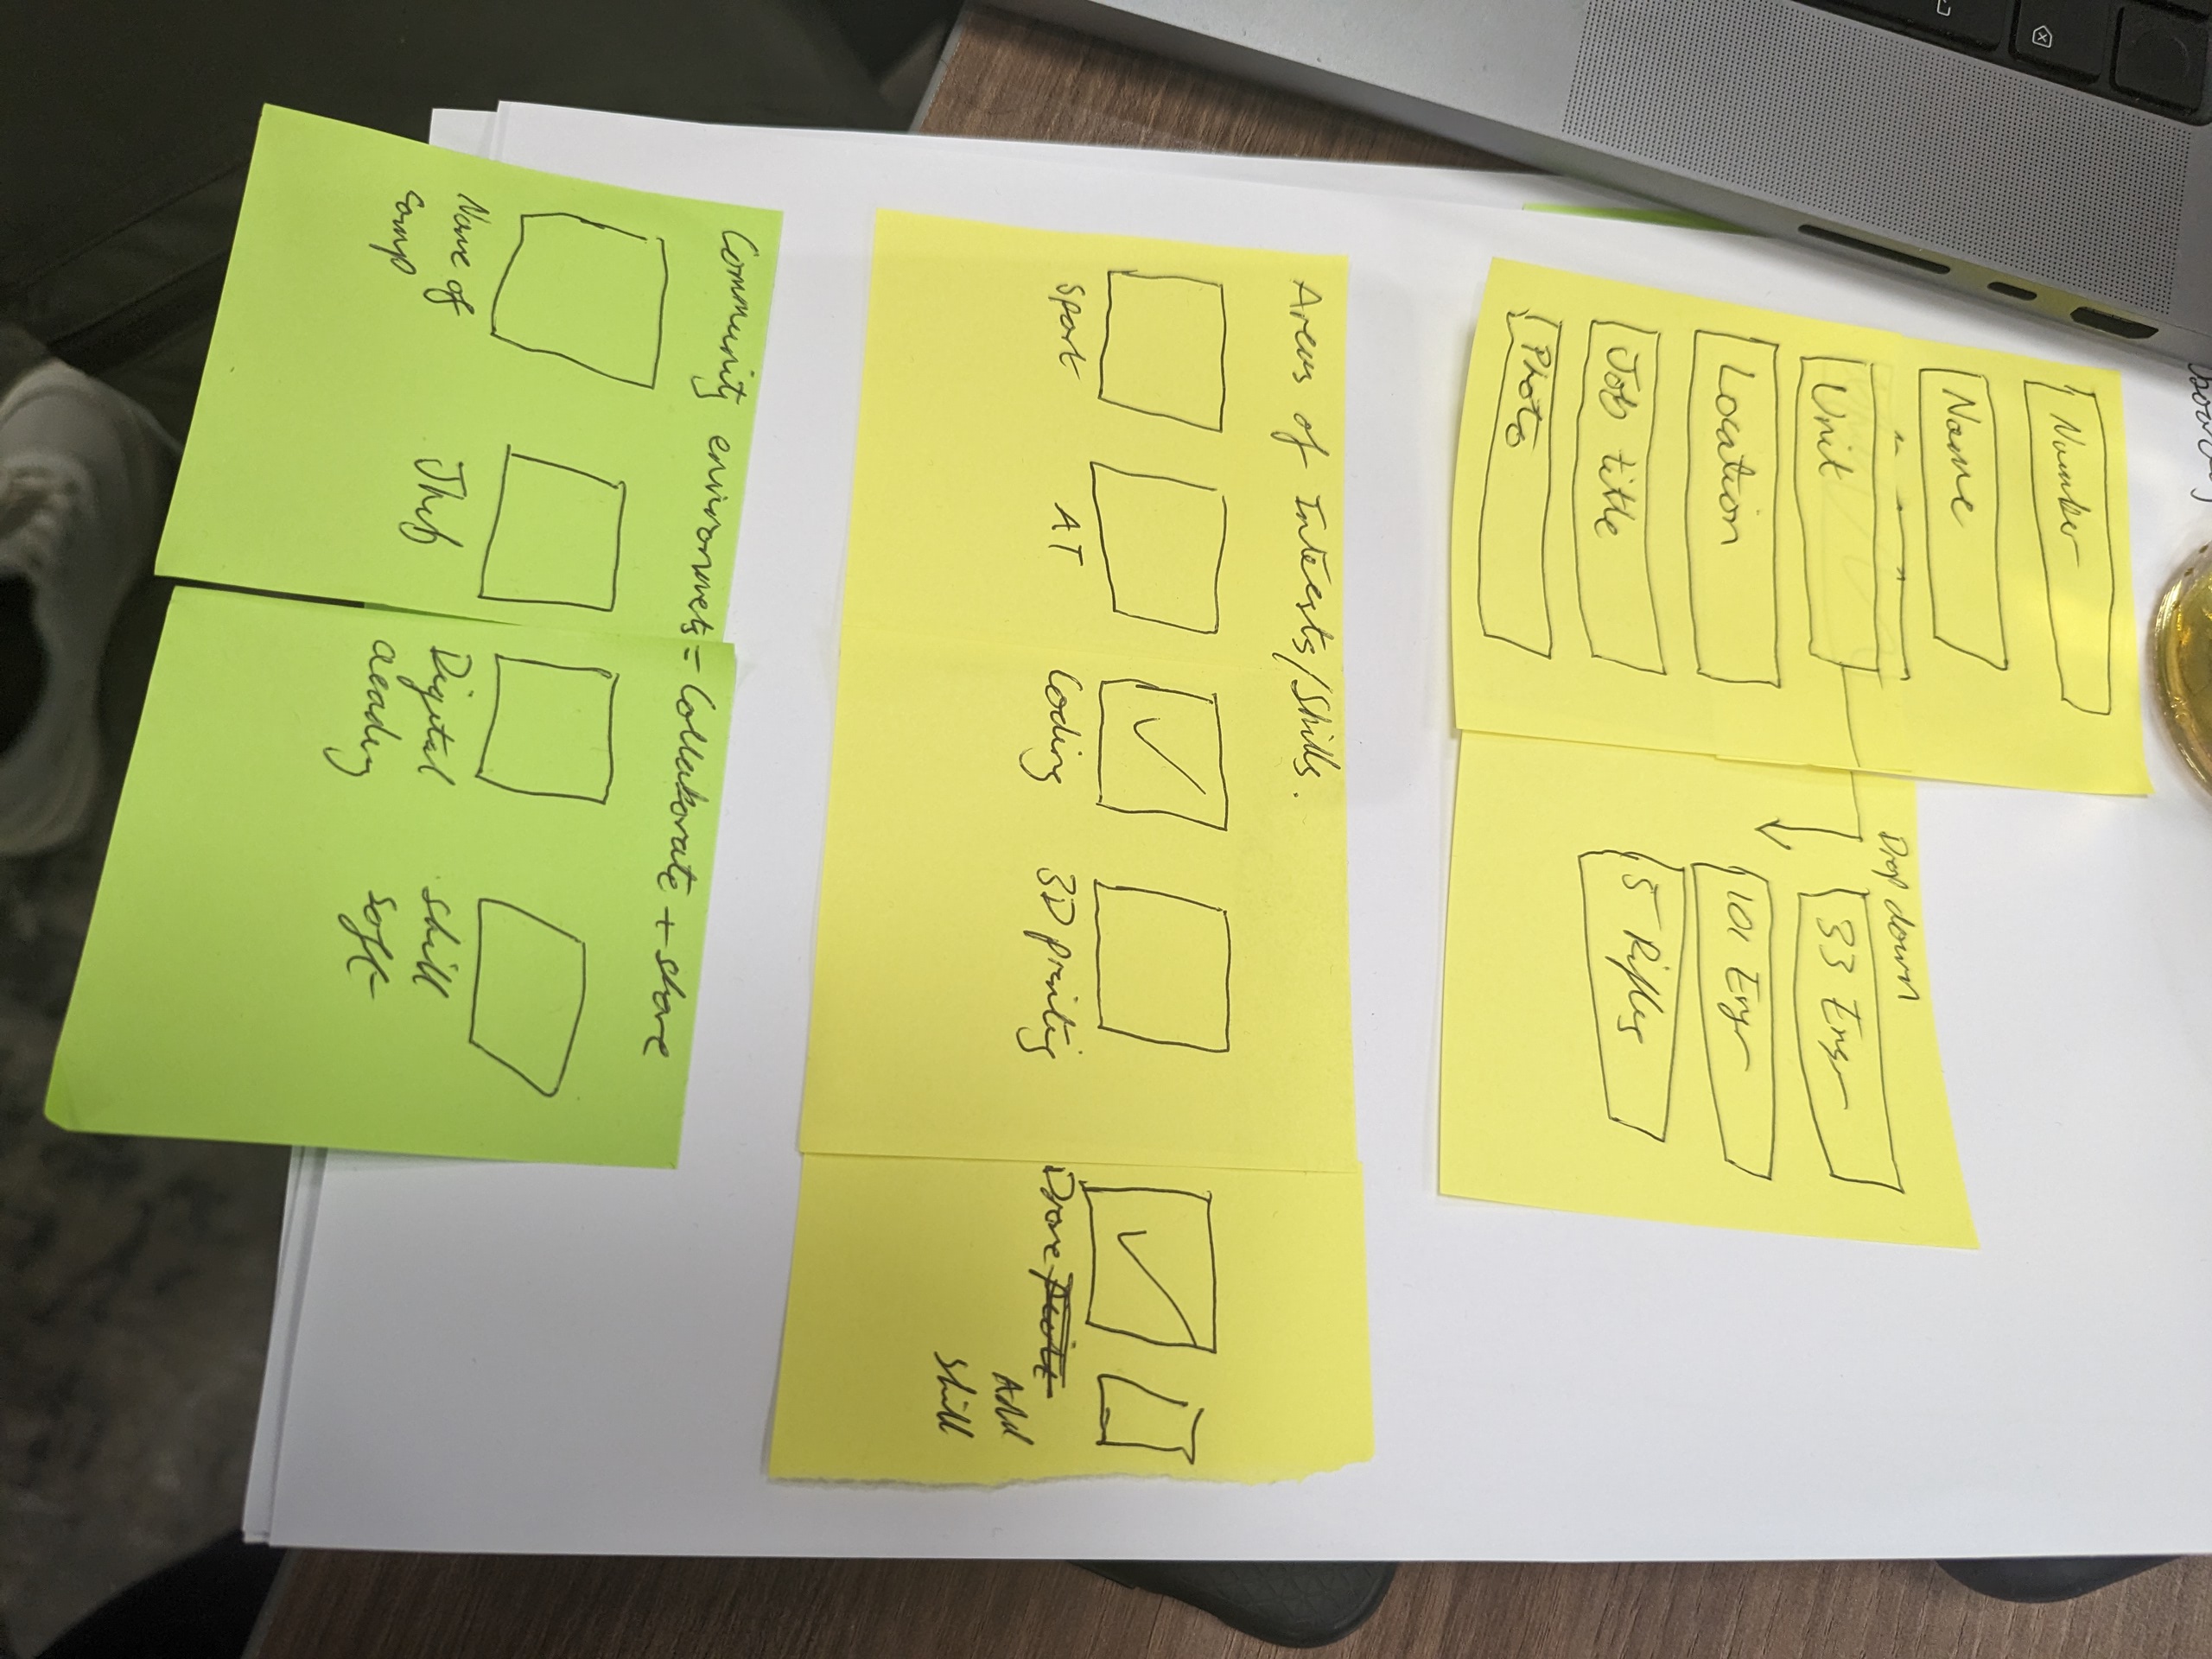 Number
Name
Unit
Location
Job title
Photo
Drop down
33 Engr
101 Engr
5 Rifles
Areas of Intrests/Skills.
Sport
AT
Coding
3D printing
Drone
Add
skill
Community environments = Collaborate + share
Name of
camp
Digital
skill
soft